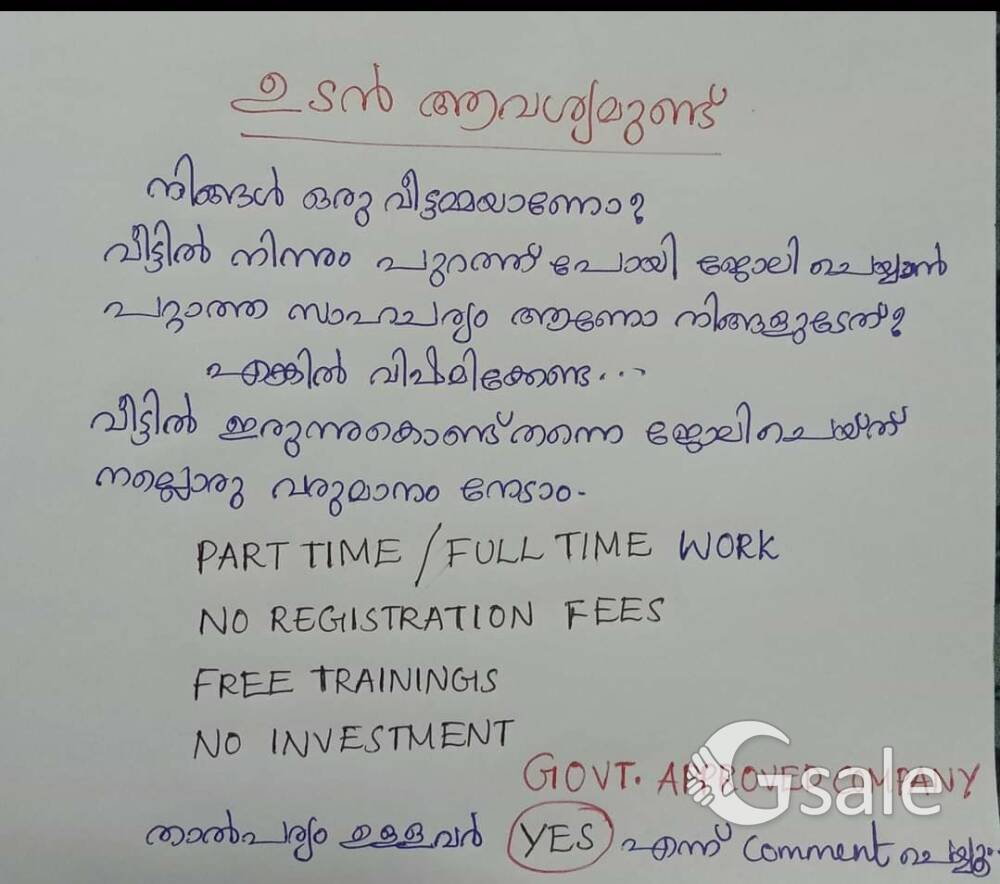 ഉടൻ ആവശ്യമുണ്ട്
നിങ്ങൾ ഒരു വീട്ടമ്മയാണോ?
വീട്ടിൽ നിന്നും പുറത്ത് പോയി ജോലി ചെയ്യാൻ
പറ്റാത്ത സാഹചര്യം ആണോ നിങ്ങളുടേത്?
എങ്കിൽ വിഷമിക്കേണ്ട...
വീട്ടിൽ ഇരുന്നുകൊണ്ട് തന്നെ ജോലി ചെയ്ത്
നല്ലൊരു വരുമാനം നേടാം.
PART TIME / FULL TIME WORK
NO REGISTRATION FEES
FREE TRAININGS
NO INVESTMENT
GOVT. APPROVED COMPANY
Gsale
താൽപര്യം ഉള്ളവർ YES എന്ന് comment ചെയ്യൂ.